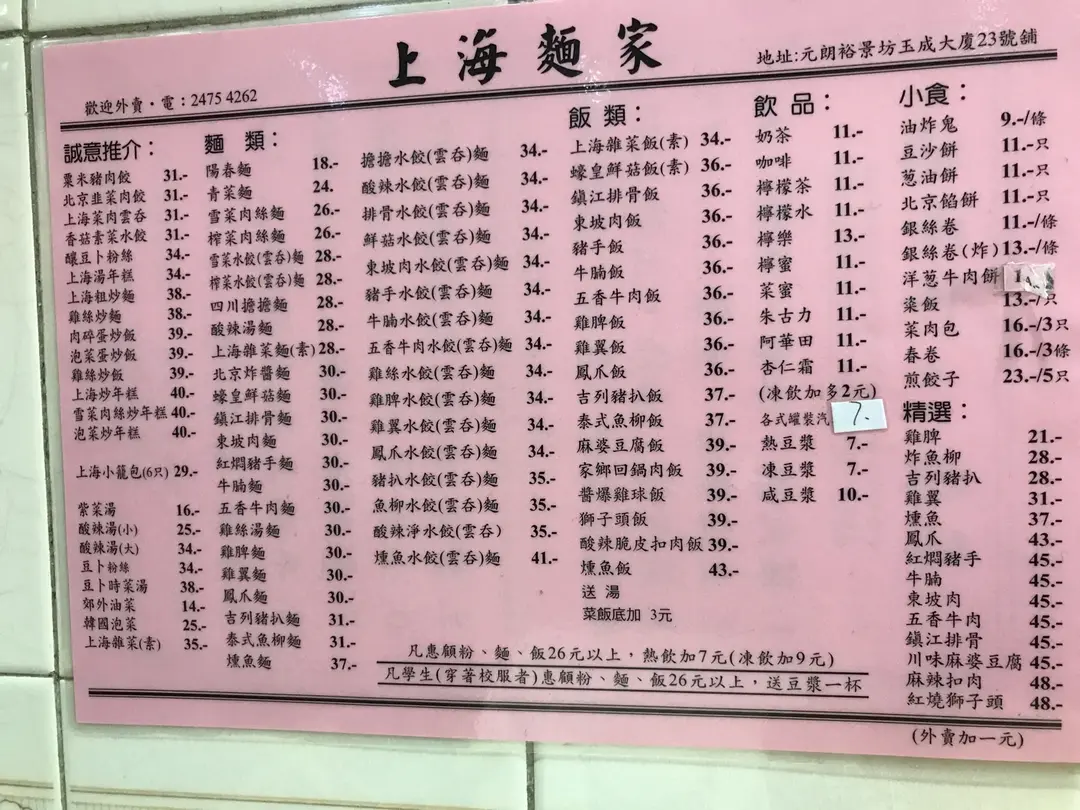 上海麵家
地址:元朗裕景坊玉成大廈23號舖
歡迎外賣・電：2475 4262
誠意推介：
粟米豬肉餃 31.-
北京韭菜肉餃 31.-
上海菜肉雲吞 31.-
香菇素菜水餃 31.-
釀豆卜粉絲 34.-
上海湯年糕 34.-
上海粗炒麵 38.-
雞絲炒麵 38.-
肉碎蛋炒飯 39.-
泡菜蛋炒飯 39.-
雞絲炒飯 39.-
上海炒年糕 40.-
雪菜肉絲炒年糕 40.-
泡菜炒年糕 40.-
上海小籠包(6只) 29.-
紫菜湯 16.-
酸辣湯(小) 25.-
酸辣湯(大) 34.-
豆卜粉絲 34.-
豆卜時菜湯 38.-
郊外油菜 14.-
韓國泡菜 25.-
上海雜菜(素) 35.-
麵 類：
陽春麵 18.-
青菜麵 24.
雪菜肉絲麵 26.-
榨菜肉絲麵 26.-
雪菜水餃(雲吞)麵 28.-
榨菜水餃(雲吞)麵 28.-
四川擔擔麵 28.-
酸辣湯麵 28.-
上海雜菜麵(素) 28.-
北京炸醬麵 30.-
蠔皇鮮菇麵 30.-
鎮江排骨麵 30.-
東坡肉麵 30.-
紅燜豬手麵 30.-
牛腩麵 30.-
五香牛肉麵 30.-
雞絲湯麵 30.-
雞脾麵 30.-
雞翼麵 30.-
鳳爪麵 30.-
吉列豬扒麵 31.-
泰式魚柳麵 31.-
燻魚麵 37.-
擔擔水餃(雲吞)麵 34.-
酸辣水餃(雲吞)麵 34.-
排骨水餃(雲吞)麵 34.-
鮮菇水餃(雲吞)麵 34.-
東坡肉水餃(雲吞)麵 34.-
豬手水餃(雲吞)麵 34.-
牛腩水餃(雲吞)麵 34.-
五香牛肉水餃(雲吞)麵 34.-
雞絲水餃(雲吞)麵 34.-
雞脾水餃(雲吞)麵 34.-
雞翼水餃(雲吞)麵 34.-
鳳爪水餃(雲吞)麵 34.-
豬扒水餃(雲吞)麵 35.-
魚柳水餃(雲吞)麵 35.-
酸辣淨水餃(雲吞) 35.-
燻魚水餃(雲吞)麵 41.-
飯 類：
上海雜菜飯(素) 34.-
蠔皇鮮菇飯(素) 36.-
鎮江排骨飯 36.-
東坡肉飯 36.-
豬手飯 36.-
牛腩飯 36.-
五香牛肉飯 36.-
雞脾飯 36.-
雞翼飯 36.-
鳳爪飯 36.-
吉列豬扒飯 37.-
泰式魚柳飯 37.-
麻婆豆腐飯 39.-
家鄉回鍋肉飯 39.-
醬爆雞球飯 39.-
獅子頭飯 39.-
酸辣脆皮扣肉飯 39.-
燻魚飯 43.-
送 湯
菜飯底加 3元
飲 品：
奶茶 11.-
咖啡 11.-
檸檬茶 11.-
檸檬水 11.-
檸樂 13.-
檸蜜 11.-
菜蜜 11.-
朱古力 11.-
阿華田 11.-
杏仁霜 11.-
(凍飲加多2元)
各式罐裝汽 7.-
熱豆漿 7.-
凍豆漿 7.-
咸豆漿 10.-
小食：
油炸鬼 9.-/條
豆沙餅 11.-只
蔥油餅 11.-只
北京餡餅 11.-只
銀絲卷 11.-/條
銀絲卷(炸) 13.-/條
洋蔥牛肉餅
粢飯 13.-/只
菜肉包 16.-/3只
春卷 16.-/3條
煎餃子 23.-/5只
精選：
雞脾 21.-
炸魚柳 28.-
吉列豬扒 28.-
雞翼 31.-
燻魚 37.-
鳳爪 43.-
紅燜豬手 45.-
牛腩 45.-
東坡肉 45.-
五香牛肉 45.-
鎮江排骨 45.-
川味麻婆豆腐 45.-
麻辣扣肉 48.-
紅燒獅子頭 48.-
凡惠顧粉、麵、飯26元以上，熱飲加7元(凍飲加9元)
凡學生(穿著校服者)惠顧粉、麵、飯26元以上，送豆漿一杯
(外賣加一元)